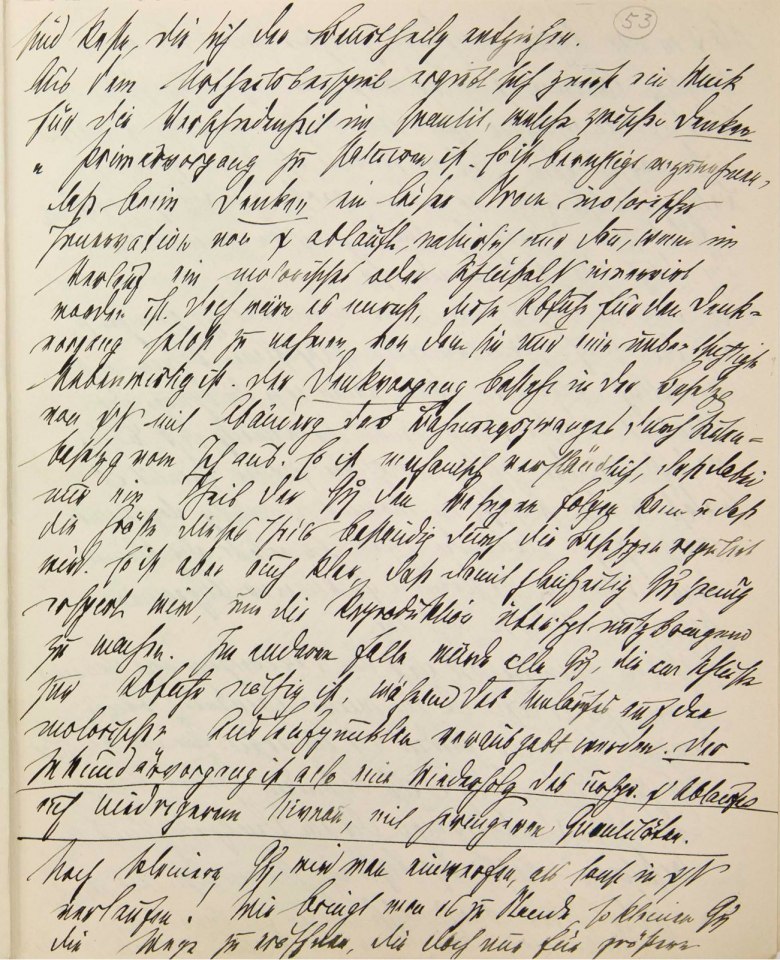 sind Reste, die sich der Beurtheilg entziehen.
Aus dem Urtheilsbeispiel ergiebt sich zuerst ein Wink
für die Verschiedenheit im Quantit., welche zwischen Denken
u Primärvorgang zu statuiren ist. Es ist berechtigt anzunehmen,
daß beim Denken ein leiser Strom motorischer
Innervation von ψ abläuft, natürlich nur dann, wenn im
Verlauf ein motorisches oder SchlüsselN innervirt
worden ist. Doch wäre es unrecht, diese Abfuhr für den Denk-
vorgang selbst zu nehmen, von dem sie nur eine unbeabsichtigte
Nebenwirkg ist. Der Denkvorgang besteht in der Besetzg
von ψN mit Abänderg des Bahnungszwanges durch Seiten-
besetzg vom Ich aus. Es ist mechanisch verständlich, daß dabei
nur ein Theil der Qη den Bahngen folgen kann u daß
die Größe dieses Theils beständig durch die Besetzgen regulirt
wird. Es ist aber auch klar, daß damit gleichzeitig Qη genug
erspart wird, um die Reproduktion überhpt nutzbringend
zu machen. Im anderen Falle würde alle Qη, die am Schluße
zur Abfuhr nöthig ist, während des Umlaufes auf den
motorischen Auslaufpunkten verausgabt werden. Der
Sekundärvorgang ist also eine Wiederholg des urspr. ψ Ablaufes
auf niedrigerem Niveau, mit geringeren Quantitäten.
Noch kleinere Qη, wird man einwerfen, als sonst in ψN
verlaufen! Wie bringt man es zu Stande, so kleinen Qη
die Wege zu eröffnen, die doch nur für größere
53